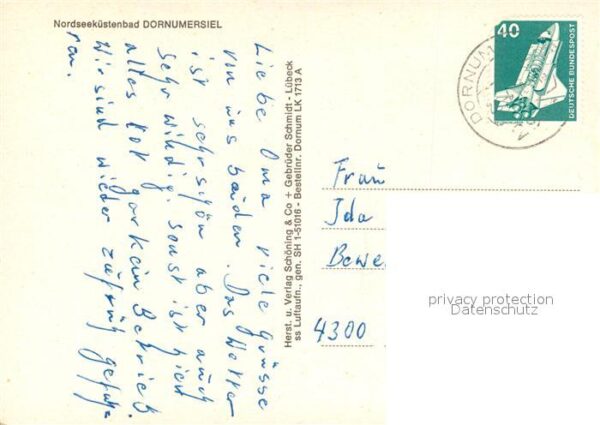 Nordseeküstenbad DORNUMERSIEL
Liebe Oma viele Grüsse
von uns beiden. Das Wetter
ist sehr schön aber auch
sehr windig. sonst ist hier
alles tot gar kein Betrieb
Wir sind wieder zurück gefah
ren.
Herst. u. Verlag Schöning & Co + Gebrüder Schmidt - Lübeck
ss Luftaufn., gen. SH 1-51016 - Bestellnr. Dornum LK 1713 A
40
DEUTSCHE BUNDESPOST
DORNUM
Frau
Ida
Bewe
4300
privacy protection
Datenschutz